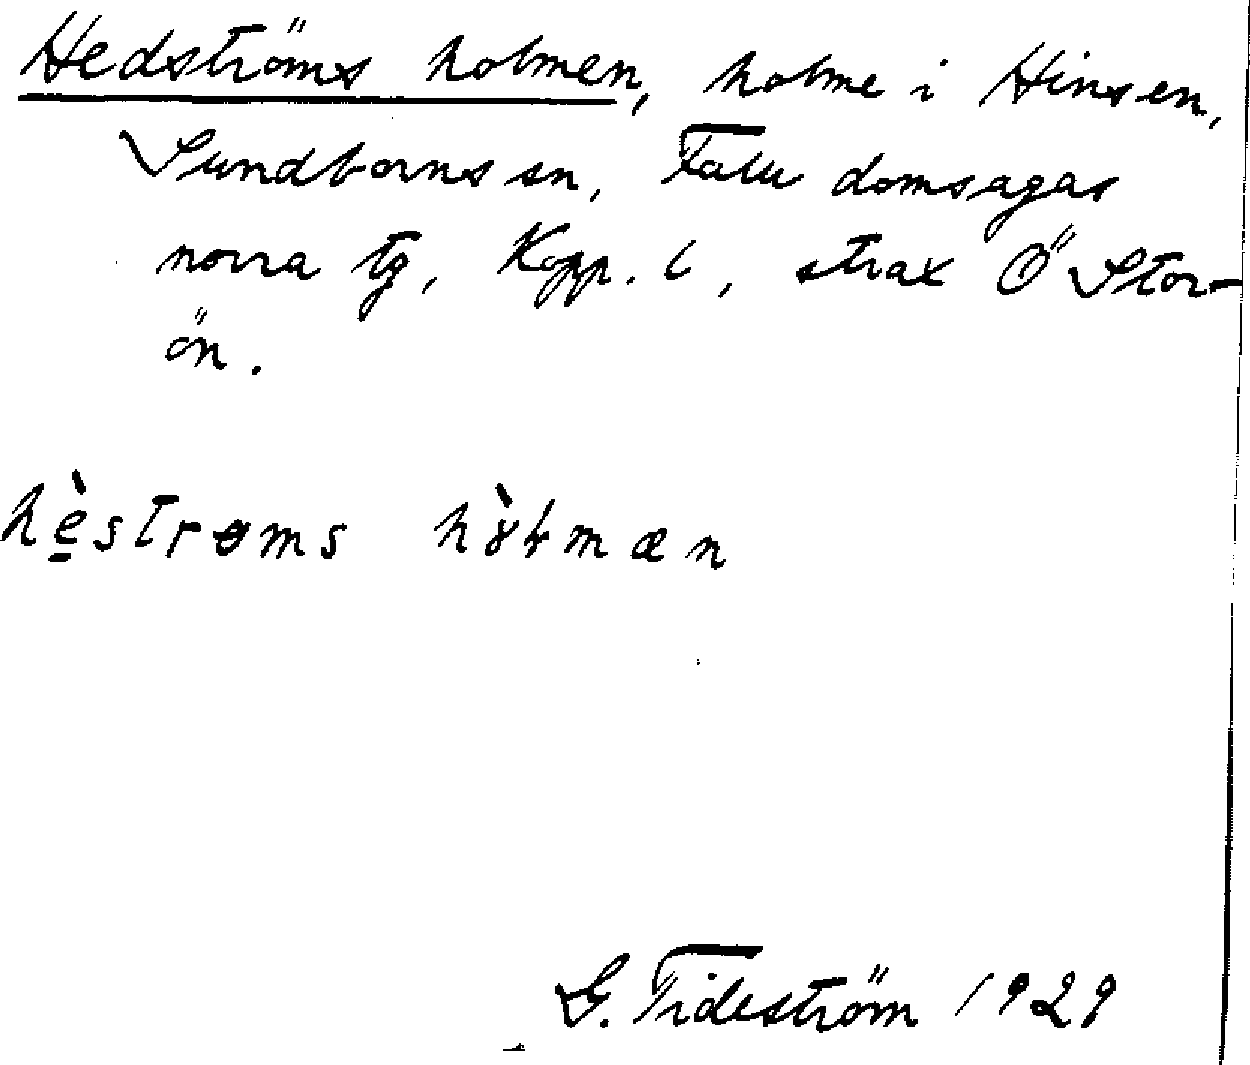 Hedströms holmen, holme i Hinsen,
Sundborns sn, Falu domsagas
norra tg, Kopp. l, strax Ö Stor-
ön.
hè̠strøms hòɫmæn
G. Tideström 1929